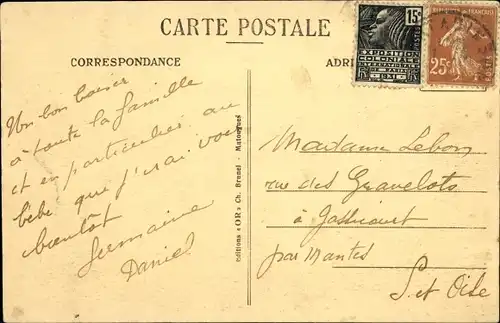 CARTE POSTALE
CORRESPONDANCE
Un bon baiser
à toute la famille
et en particulier au
bébé que j'irai voir
bientôt
Germaine
Daniel
Editions « OR » Ch. Brunel - Matougues
15c
POSTES
EXPOSITION
COLONIALE
INTERNATIONALE
PARIS 1931
25c
Madame Lebon
rue des Gravelots
à
par Mantes
S. et Oise